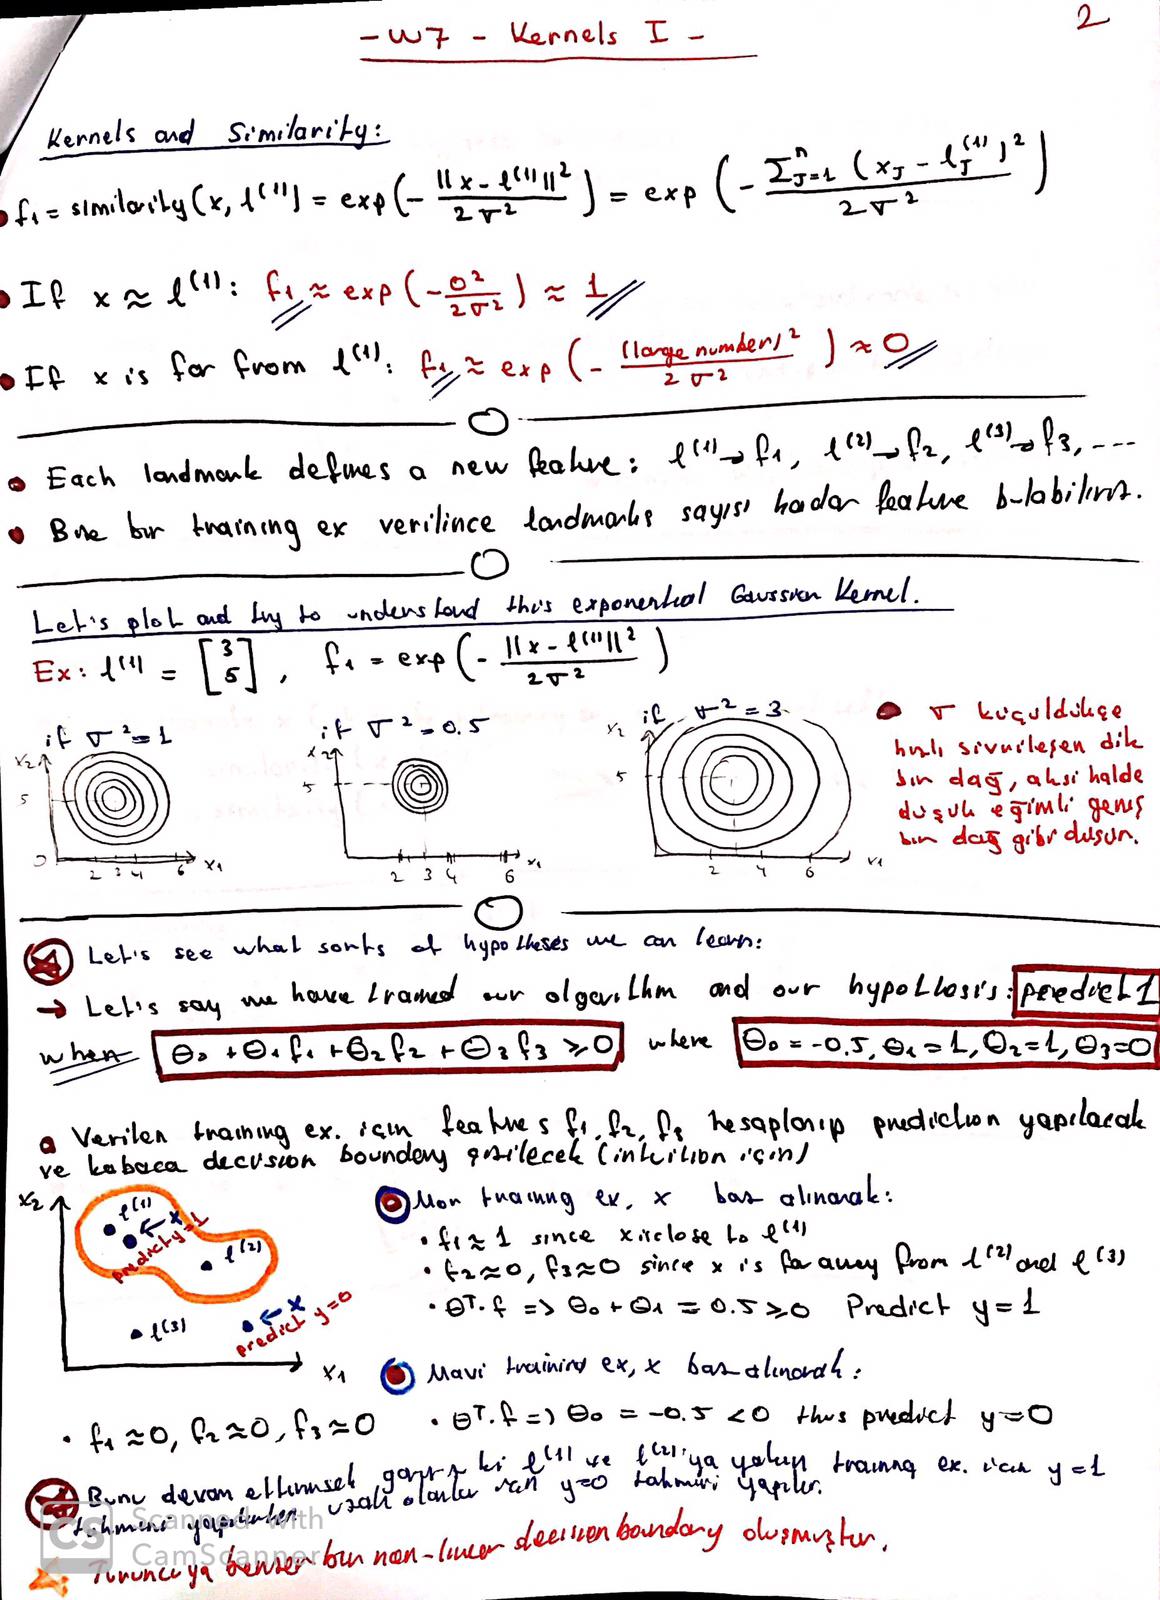 - W7 - Kernels I -
2
Kernels and Similarity:
f₁ = similarity(x, l⁽¹⁾) = exp(- ||x - l⁽¹⁾||² / 2σ²) = exp(- Σⁿⱼ₌₁ (xⱼ - lⱼ⁽¹⁾)² / 2σ²)
If x ≈ l⁽¹⁾: f₁ ≈ exp(- 0² / 2σ²) ≈ 1
If x is far from l⁽¹⁾: f₁ ≈ exp(- (large number)² / 2σ²) ≈ 0
Each landmark defines a new feature: l⁽¹⁾→f₁, l⁽²⁾→f₂, l⁽³⁾→f₃, ...
Bize bir training ex verilince landmarks sayısı kadar feature bulabiliriz.
Let's plot and try to understand this exponential Gaussian Kernel.
Ex: l⁽¹⁾ = [3 5], f₁ = exp(- ||x - l⁽¹⁾||² / 2σ²)
if σ² = 1
if σ² = 0.5
if σ² = 3
x₂ 5 0 2 3 4 6 x₁
x₂ 5 2 3 4 6 x₁
x₂ 5 2 4 6 x₁
σ küçüldükçe
hızlı sivrileşen dik
bir dağ, aksi halde
düşük eğimli geniş
bir dağ gibi düşün.
Let's see what sorts of hypotheses we can learn:
→ Let's say we have trained our algorithm and our hypothesis: predict 1
when θ₀ + θ₁f₁ + θ₂f₂ + θ₃f₃ ≥ 0 where θ₀ = -0.5, θ₁ = 1, θ₂ = 1, θ₃ = 0
Verilen training ex. için features f₁, f₂, f₃ hesaplanıp prediction yapılacak
ve kabaca decision boundary çizilecek (intuition için)
x₂
l⁽¹⁾
← x
predict y=1
l⁽²⁾
l⁽³⁾
← x
predict y=0
x₁
Mor training ex, x baz alınarak:
• f₁ ≈ 1 since x is close to l⁽¹⁾
• f₂ ≈ 0, f₃ ≈ 0 since x is far away from l⁽²⁾ and l⁽³⁾
• θᵀ.f => θ₀ + θ₁ = 0.5 ≥ 0 Predict y = 1
Mavi training ex, x baz alınarak:
• f₁ ≈ 0, f₂ ≈ 0, f₃ ≈ 0 • θᵀ.f => θ₀ = -0.5 < 0 thus predict y=0
Bunu devam ettirirsek görürüz ki l⁽¹⁾ ve l⁽²⁾'ya yakın training ex. için y=1
tahmini yapılırken uzak olanlar için y=0 tahmini yapılır.
Turuncuya benzer bir non-linear decision boundary oluşmuştur.
CS Scanned with
CamScanner